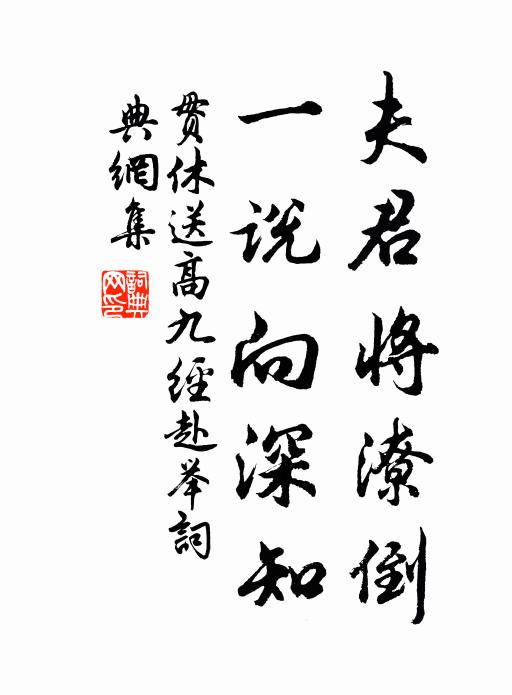 夫君将潦倒
一说向深知
贯休送高九经赴举词
典网集
词典网印